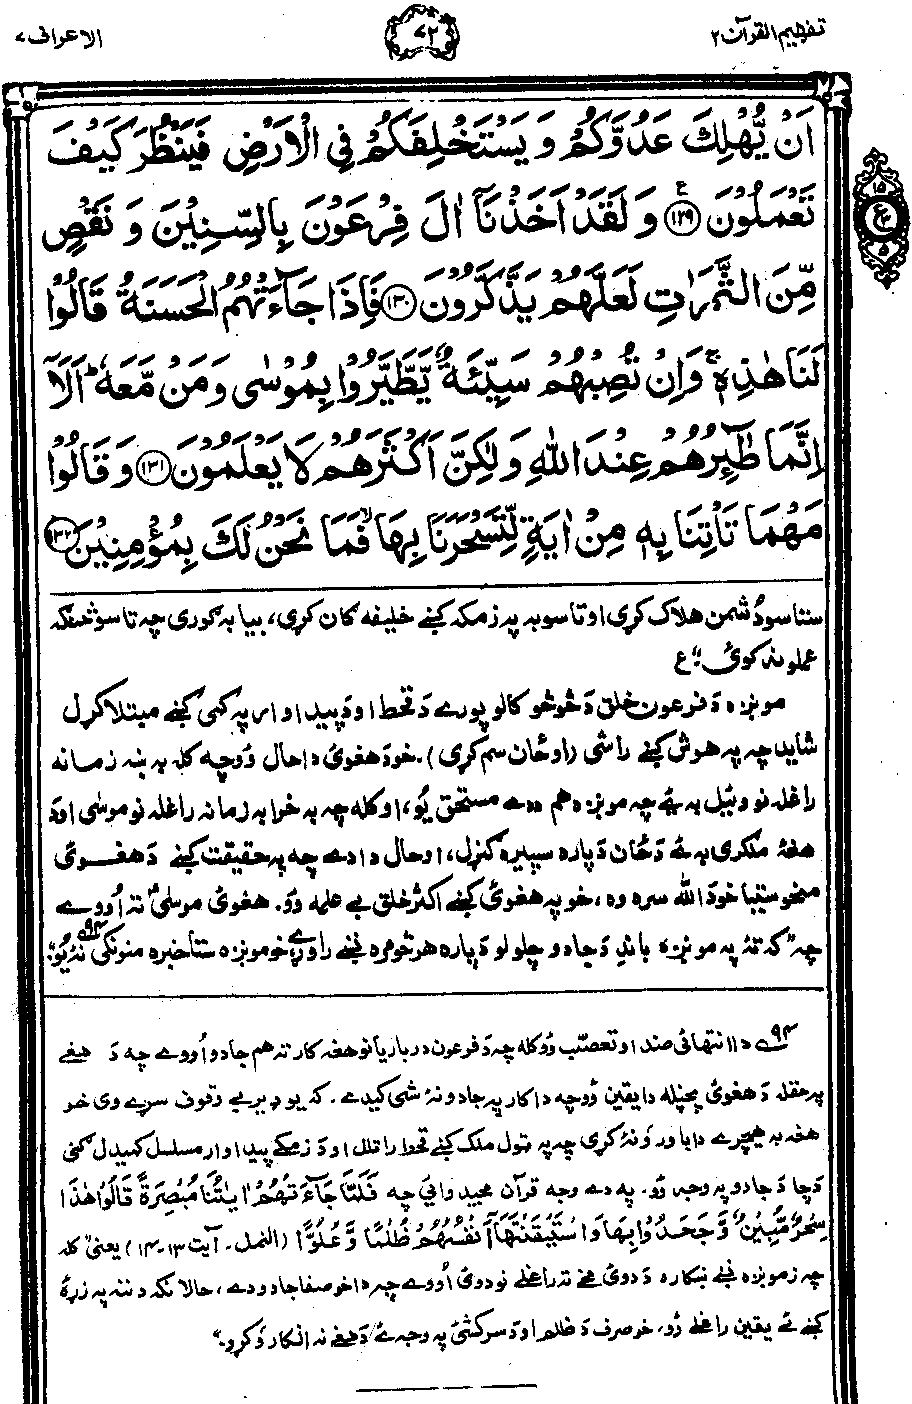 تفهیم القرآن ۲
۷۲
الاعراف ۷
اَنْ یُّهْلِكَ عَدُوَّكُمْ وَ یَسْتَخْلِفَكُمْ فِی الْاَرْضِ فَیَنْظُرَ كَیْفَ
تَعْمَلُوْنَ ﴿۱۲۹﴾ وَ لَقَدْ اَخَذْنَاۤ اٰلَ فِرْعَوْنَ بِالسِّنِیْنَ وَ نَقْصٍ
مِّنَ الثَّمَرٰتِ لَعَلَّهُمْ یَذَّكَّرُوْنَ ﴿۱۳۰﴾ فَاِذَا جَآءَتْهُمُ الْحَسَنَةُ قَالُوْا
لَنَا هٰذِهٖ ۚ وَ اِنْ تُصِبْهُمْ سَیِّئَةٌ یَّطَّیَّرُوْا بِمُوْسٰی وَ مَنْ مَّعَهٗ ؕ اَلَاۤ
اِنَّمَا طٰٓئِرُهُمْ عِنْدَ اللّٰهِ وَ لٰكِنَّ اَكْثَرَهُمْ لَا یَعْلَمُوْنَ ﴿۱۳۱﴾ وَ قَالُوْا
مَهْمَا تَاْتِنَا بِهٖ مِنْ اٰیَةٍ لِّتَسْحَرَنَا بِهَا ۙ فَمَا نَحْنُ لَكَ بِمُؤْمِنِیْنَ ﴿۱۳۲﴾
ستاسو دُشمن هلاک کړی او تاسو به په زمکه کښے خلیفه ګان کړی، بیا به ګوری چه تاسو څنګه
عملونه کوئ ۔" ع
مونږه دَ فرعون خلق دَ څو څو کالو پورے دَ قحط او دَ پیداوار په کمی کښے مبتلا کړل
شاید چه په هوش کښے راشی (او ځان سم کړی). خو دَ هغوئ دا حال وُو چه کله به ښه زمانه
راغله نو وئیل به ئے چه مونږه هم دد‎ے مستحق یُو، او کله چه به خرابه زمانه راغله نو موسٰی او دَ
هغهٔ ملګری به ئے دَ ځان دَپاره سپیره ګنړل، او حال دا دے چه په حقیقت کښے دَ هغوئ
سپیره خو دَ الله سره وه، خو په هغوئ کښے اکثر خلق بے علمه وُو. هغوئ موسٰی ته اُووے
چه "که تهٔ په مونږه باندِ دَ جادو چلولو دَپاره هر څومره نښے راوړے خو مونږه ستا خبره منونکی نهٔ یُو۹۴
۹۴ دا انتهائی ضد او تعصّب وُو کله چه دَ فرعون درباریانو هغه کار ته هم جادو اُووے چه دَ هغے
په حقله دَ هغوئ پخپله دا یقین وُو چه دا کار په جادو نهٔ شی کیدے. که یو ډیر بے وقوف سرے وی خو
هغه به هیچرے دا باور وُ نهٔ کړی چه په ټول ملک کښے قحط راتلل او دَ زمکے پیداوار مسلسل کمیدل ګنی
دَ چا دَ جادو په وجه وُو. په دے وجه قرآن مجید وائی چه فَلَمَّا جَآءَتْهُمْ اٰیٰتُنَا مُبْصِرَةً قَالُوْا هٰذَا
سِحْرٌ مُّبِیْنٌ وَّ جَحَدُوْا بِهَا وَ اسْتَیْقَنَتْهَاۤ اَنْفُسُهُمْ ظُلْمًا وَّ عُلُوًّا (النمل۔ آیت ۱۳-۱۴) یعنی "کله
چه زمونږه نښے ښکاره دَ دوئ مخے ته راغلے نو دوئ اُووے چه دا خو صفا جادو دے، حالانکه دننه په زړهٔ
کښے ئے یقین راغلے وُو. خو صرف دَ ظلم او دَ سرکشئ په وجه ئے دَ هغے نه انکار وُ کړو."